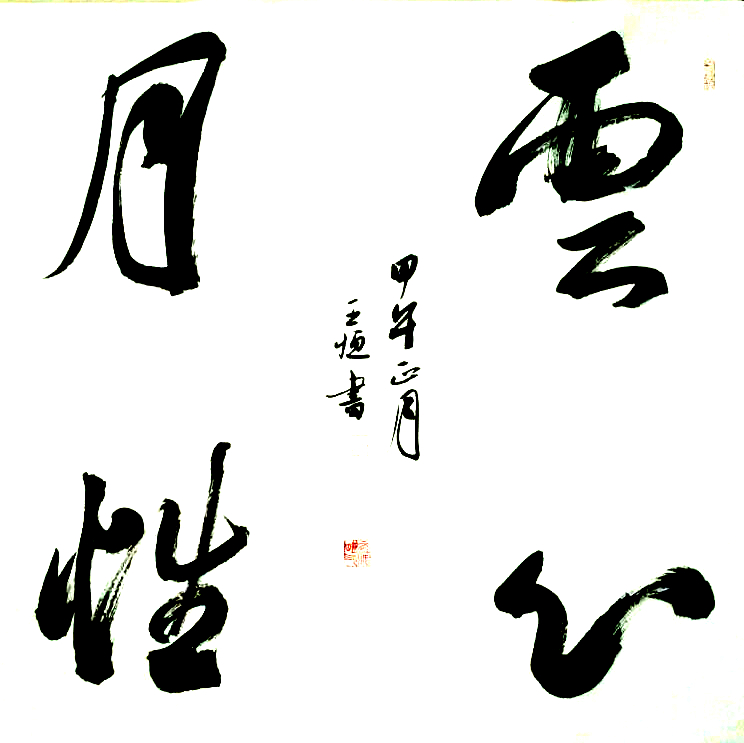 雲心
月性
甲午正月
王恒書